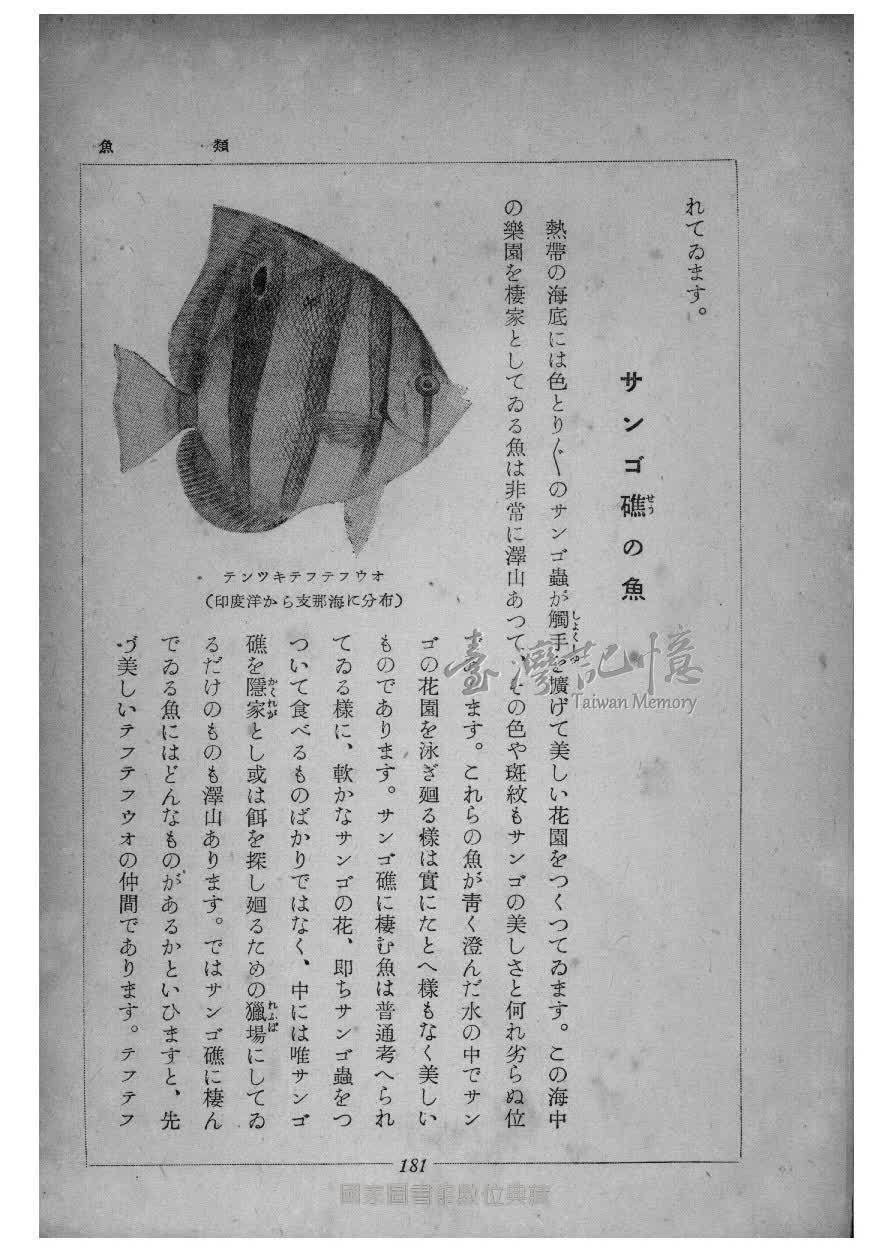 魚類
れてゐます。
サンゴ礁の魚
せう
熱帶の海底には色とり〴〵のサンゴ蟲が觸手を擴げて美しい花園をつくつてゐます。この海中
しよくしゆ
の樂園を棲家としてゐる魚は非常に澤山あつて、その色や斑紋もサンゴの美しさと何れ劣らぬ位
ます。これらの魚が靑く澄んだ水の中でサン
ゴの花園を泳ぎ廻る樣は實にたとへ樣もなく美しい
ものであります。サンゴ礁に棲む魚は普通考へられ
てゐる樣に、軟かなサンゴの花、卽ちサンゴ蟲をつ
ついて食べるものばかりではなく、中には唯サンゴ
礁を隱家とし或は餌を探し廻るための獵場にしてゐ
かくれが
れふば
るだけのものも澤山あります。ではサンゴ礁に棲ん
でゐる魚にはどんなものがあるかといひますと、先
づ美しいテフテフウオの仲間であります。テフテフ
オウフテフテキツンテ
(印度洋から支那海に分布)
181
臺灣記憶
Taiwan Memory
國家圖書館數位典藏